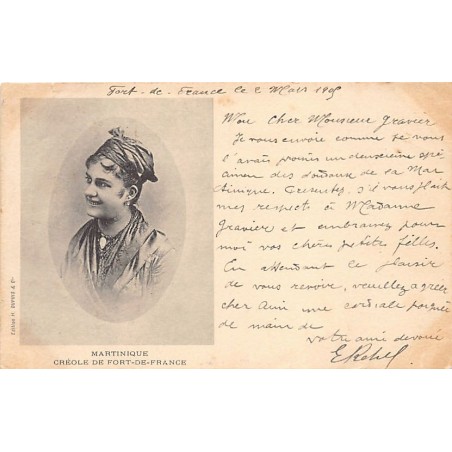 Fort-de-France le 2 Mars 190
Mon cher Monsieur Gravier
Je vous envoie comme je vous
l'avais promis un deuxième spé
cimen des de la Mar
tinique. Presentez, s'il vous plait
mes respects à Madame
Gravier et embrassez pour
moi vos chères petites filles.
En attendant le plaisir
de vous revoir, veuillez agréer
cher Ami une cordiale poignée
de main de
votre ami dévoué
MARTINIQUE
CRÉOLE DE FORT-DE-FRANCE